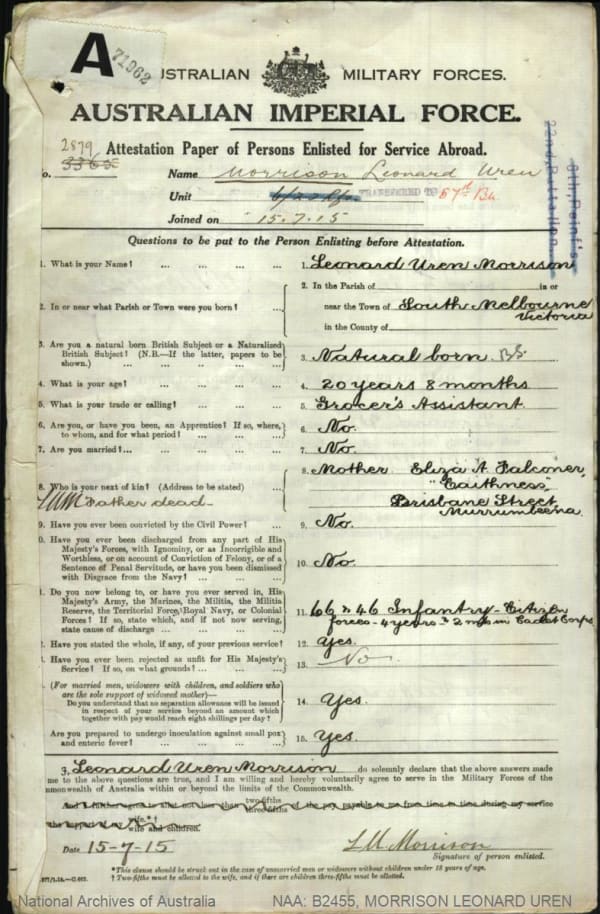 A
71962
AUSTRALIAN MILITARY FORCES.
AUSTRALIAN IMPERIAL FORCE.
2879
3365
Attestation Paper of Persons Enlisted for Service Abroad.
o. Name Morrison Leonard Uren
Unit TRANSFERRED TO 57th Bn
Joined on 15.7.15
22nd Battalion
Questions to be put to the Person Enlisting before Attestation.
1. What is your Name? ... ... ... ... 1. Leonard Uren Morrison
2. In or near what Parish or Town were you born? ... 2. In the Parish of in or
near the Town of South Melbourne
Victoria
in the County of
3. Are you a natural born British Subject or a Naturalized
British Subject? (N.B.—If the latter, papers to be
shown.) ... ... ... ... 3. Natural born BS
4. What is your age? ... ... ... ... 4. 20 years 8 months
5. What is your trade or calling? ... ... ... 5. Grocer's Assistant
6. Are you, or have you been, an Apprentice? If so, where,
to whom, and for what period? ... ... ... 6. No.
7. Are you married?... ... ... ... ... 7. No.
8. Who is your next of kin? (Address to be stated) ... 8. Mother Eliza A. Falconer
"Caithness"
LUM Father dead Brisbane Street
Murrumbeena
9. Have you ever been convicted by the Civil Power? ... 9. No.
0. Have you ever been discharged from any part of His
Majesty's Forces, with Ignominy, or as Incorrigible and
Worthless, or on account of Conviction of Felony, or of a
Sentence of Penal Servitude, or have you been dismissed
with Disgrace from the Navy? ... ... ... 10. No.
1. Do you now belong to, or have you ever served in, His
Majesty's Army, the Marines, the Militia, the Militia
Reserve, the Territorial Force, Royal Navy, or Colonial
Forces? If so, state which, and if not now serving,
state cause of discharge ... ... ... 11. 66 & 46 Infantry - Citizen
forces - 4 years & 2 mos in Cadet Corps
. Have you stated the whole, if any, of your previous service? 12. Yes.
. Have you ever been rejected as unfit for His Majesty's
Service? If so, on what grounds? ... ... 13. No
. (For married men, widowers with children, and soldiers who
are the sole support of widowed mother)—
Do you understand that no separation allowance will be issued
in respect of your service beyond an amount which
together with pay would reach eight shillings per day? 14. Yes.
. Are you prepared to undergo inoculation against small pox
and enteric fever? ... ... ... ... 15. Yes.
I, Leonard Uren Morrison do solemnly declare that the above answers made
me to the above questions are true, and I am willing and hereby voluntarily agree to serve in the Military Forces of the
mmonwealth of Australia within or beyond the limits of the Commonwealth.
And I further agree to allot not less than two-fifths
three-fifths of the pay payable to me from time to time during my service
the support of my wife.*†
wife and children.
Date 15-7-15 L U Morrison
Signature of person enlisted.
*This clause should be struck out in the case of unmarried men or widowers without children under 18 years of age.
† Two-fifths must be allotted to the wife, and if there are children three-fifths must be allotted.
National Archives of Australia NAA: B2455, MORRISON LEONARD UREN